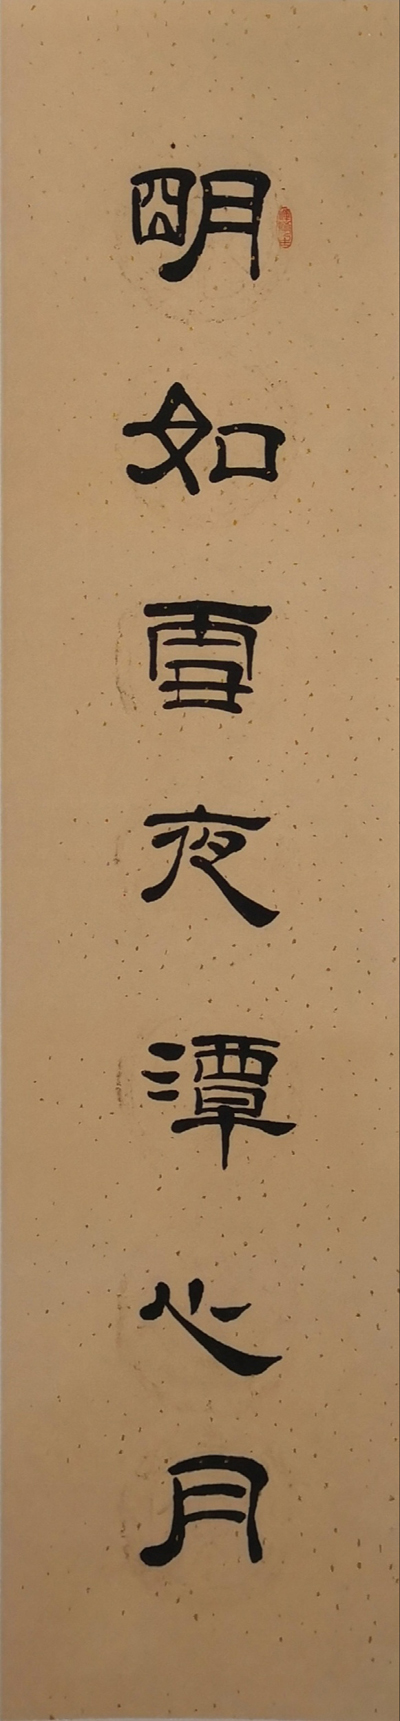 明如雪夜潭心月